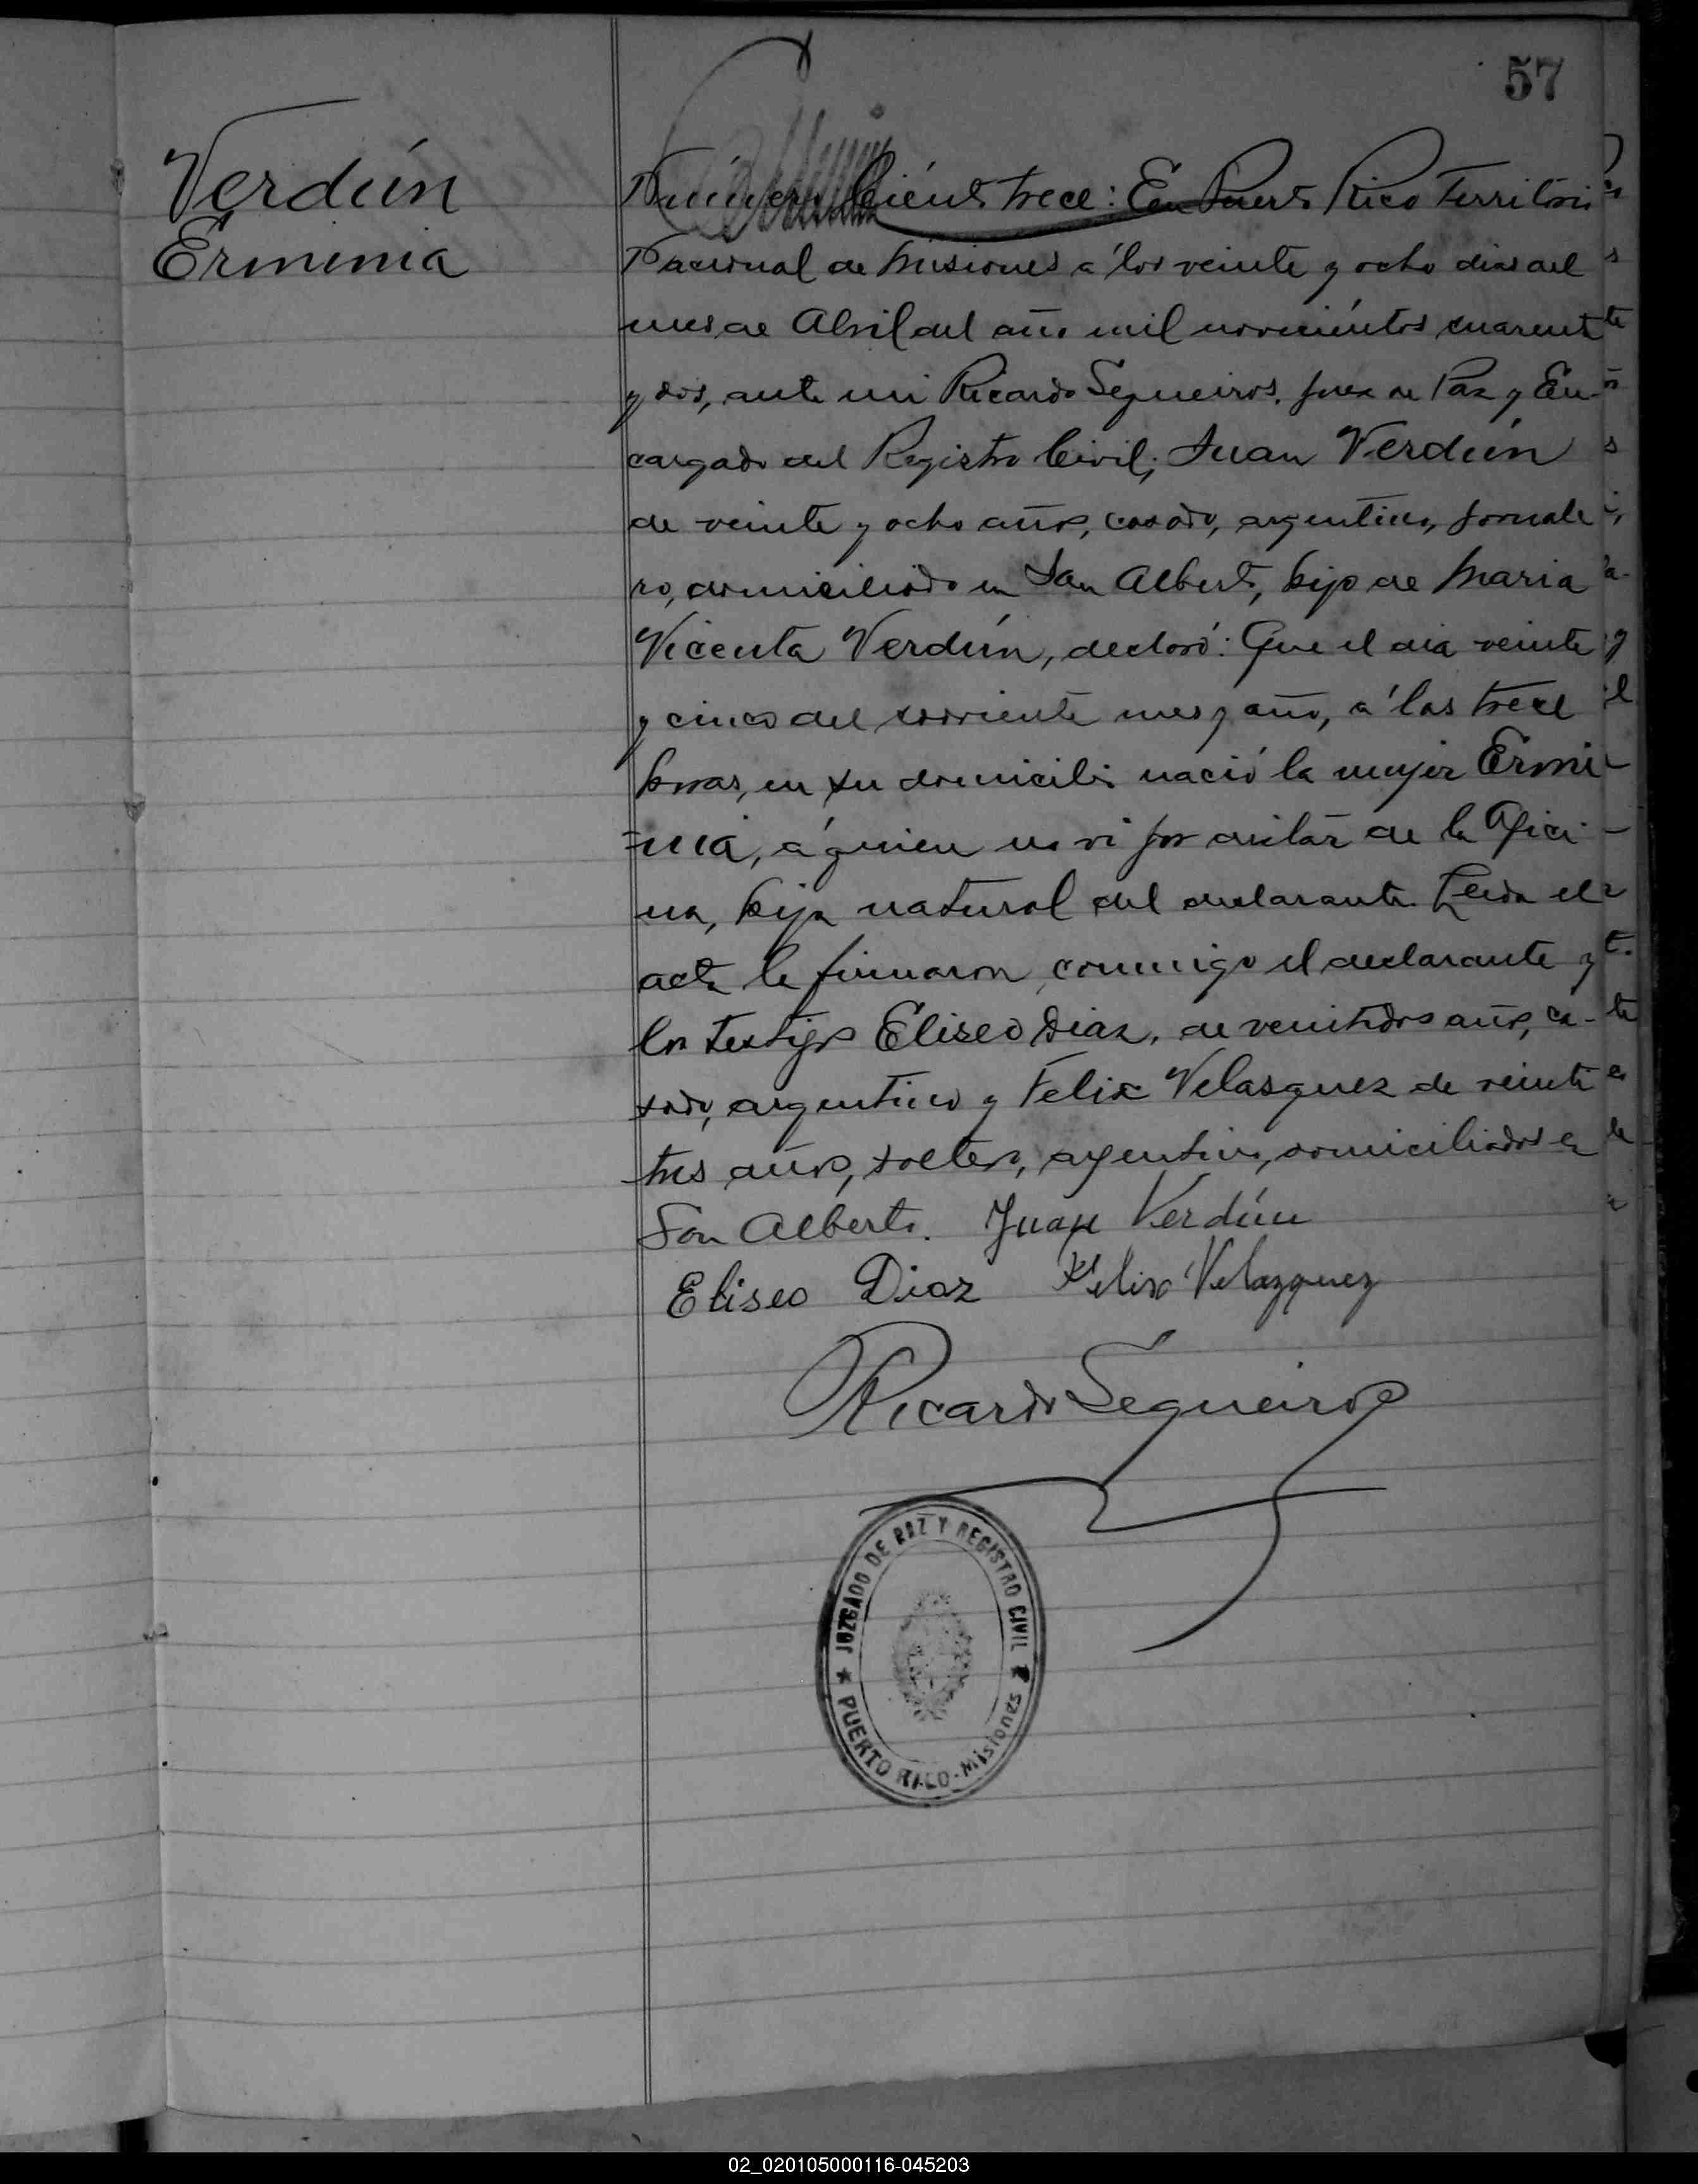 57
Verdún
Erminia
Número Ciento trece: En Puerto Rico Territorio
Nacional de Misiones á los veinte y ocho dias del
mes de Abril del año mil novecientos cuarenta
y dos, ante mi Ricardo Sequeiros, Juez de Paz y En-
cargado del Registro Civil, Juan Verdún
de veinte y ocho años, casado, argentino, jornale
ro, domiciliado en San Alberto, hijo de Maria
Vicenta Verdún, declaró: Que el dia veinte
y cinco del corriente mes y año, á las trece
horas, en su domicilio nació la mujer Ermi-
=nia, á quien no vi por distar de la Ofici-
na, hija natural del declarante. Leida el
acta la firmaron conmigo el declarante y
los testigos Eliseo Diaz, de veintidos años, ca-
sado, argentino y Felix Velasquez de veinte
tres años, soltero, argentino, domiciliados en
San Alberto. Juan Verdún
Eliseo Diaz Felix Velazquez
Ricardo Sequeiros
JUZGADO DE PAZ Y REGISTRO CIVIL
PUERTO RICO - Misiones
02_020105000116-045203